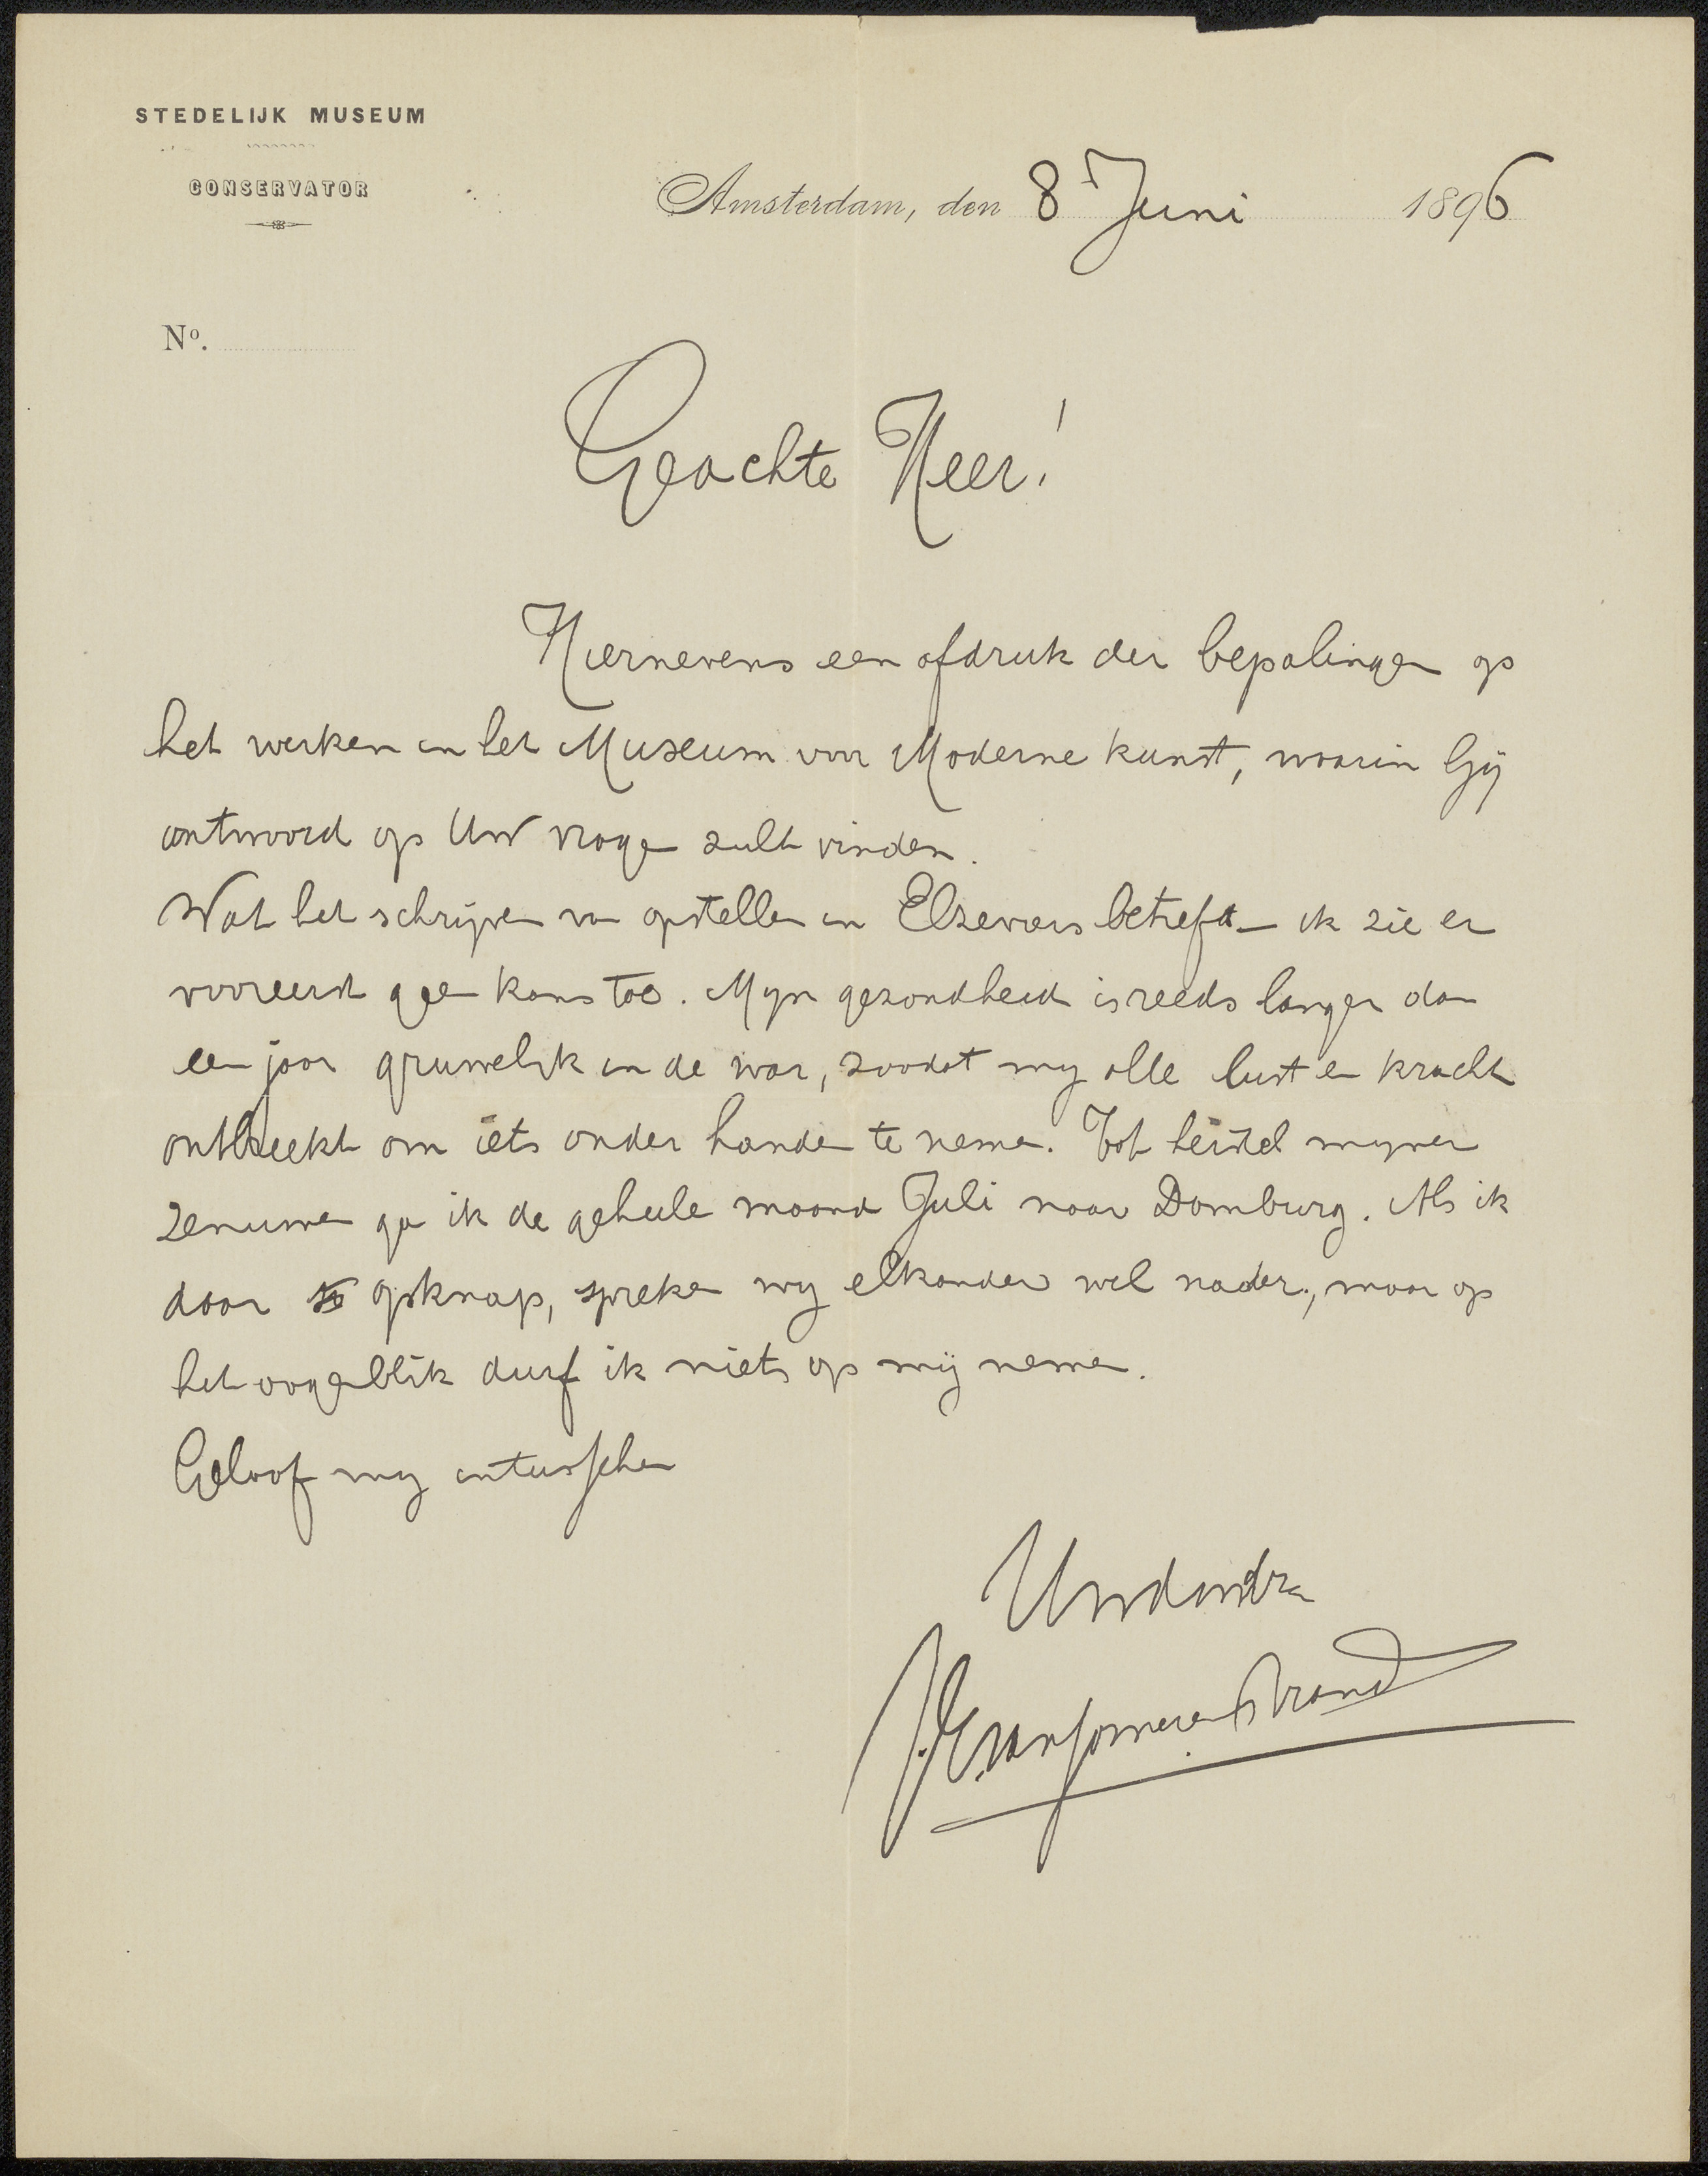 STEDELIJK MUSEUM
CONSERVATOR
Amsterdam, den 8 Juni 1896
Nº.
Geachte Heer!
Hiernevens een afdruk der bepalingen op
het werken in het Museum voor Moderne kunst, waarin Gij
antwoord op Uw vragen zult vinden.
Wat het schrijven van opstellen in Elseviers betreft – ik zie er
vooreerst geen kans toe. Mijn gezondheid is reeds langer dan
een jaar gruwelijk in de war, zoodat mij alle lust en kracht
ontbreekt om iets onder handen te nemen. Tot herstel mijner
zenuwen ga ik de geheele maand Juli naar Domburg. Als ik
daar opknap, spreken wij elkander wel nader, maar op
het oogenblik durf ik niets op mij nemen.
Geloof mij intusschen
Uwdwdr
J.E. van Someren Brand